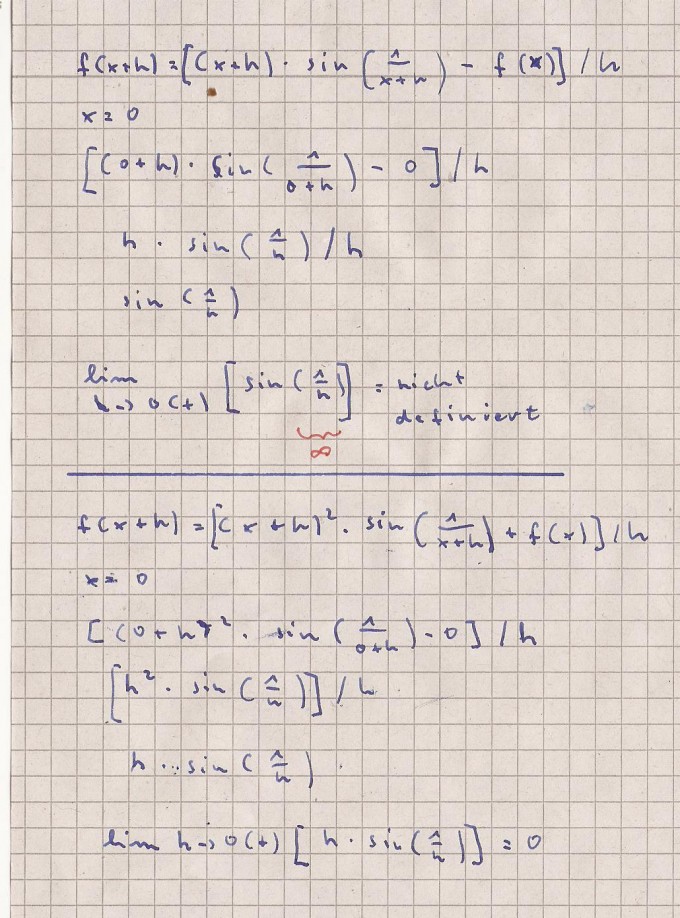 f(x+h) = [(x+h) · sin (1/(x+h)) - f(x)] / h
x = 0
[(0+h) · sin (1/(0+h)) - 0] / h
h · sin (1/h) / h
sin (1/h)
lim h->0(+) [sin (1/h)] = nicht definiert
∞
f(x+h) = [(x+h)² · sin (1/(x+h)) + f(x)] / h
x = 0
[(0+h)² · sin (1/(0+h)) - 0] / h
[h² · sin (1/h)] / h
h · sin (1/h)
lim h->0(+) [h · sin (1/h)] = 0